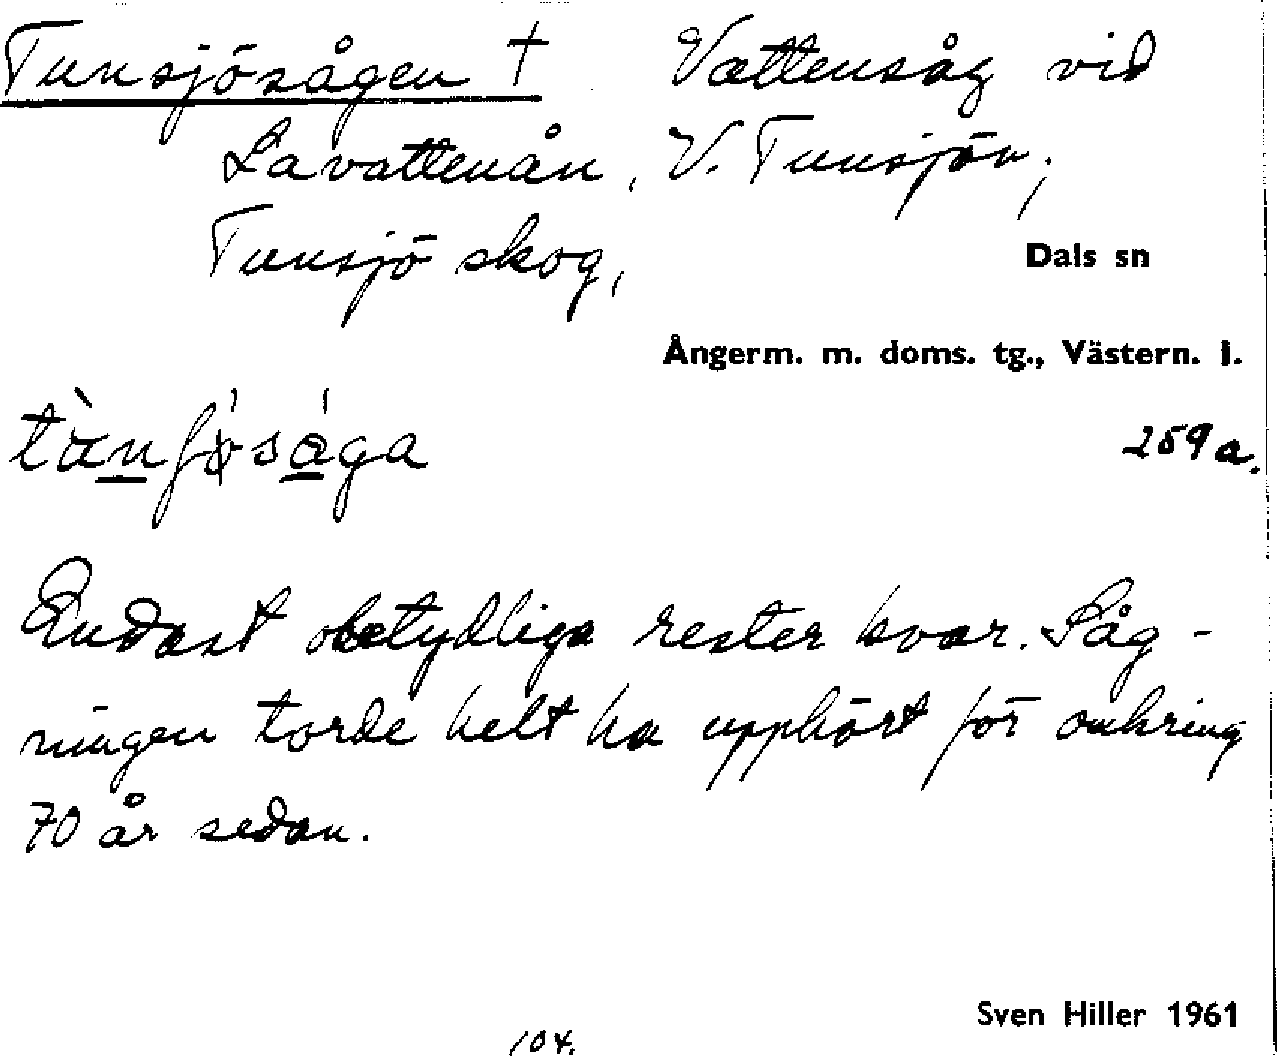 Tunsjösågen † Vattensåg vid
Lavattenån, V. Tunsjön,
Tunsjö skog,
Dals sn
Ångerm. m. doms. tg., Västern. l.
259 a.
Endast obetydliga rester kvar. Såg-
ningen torde helt ha upphört för omkring
70 år sedan.
Sven Hiller 1961
104.